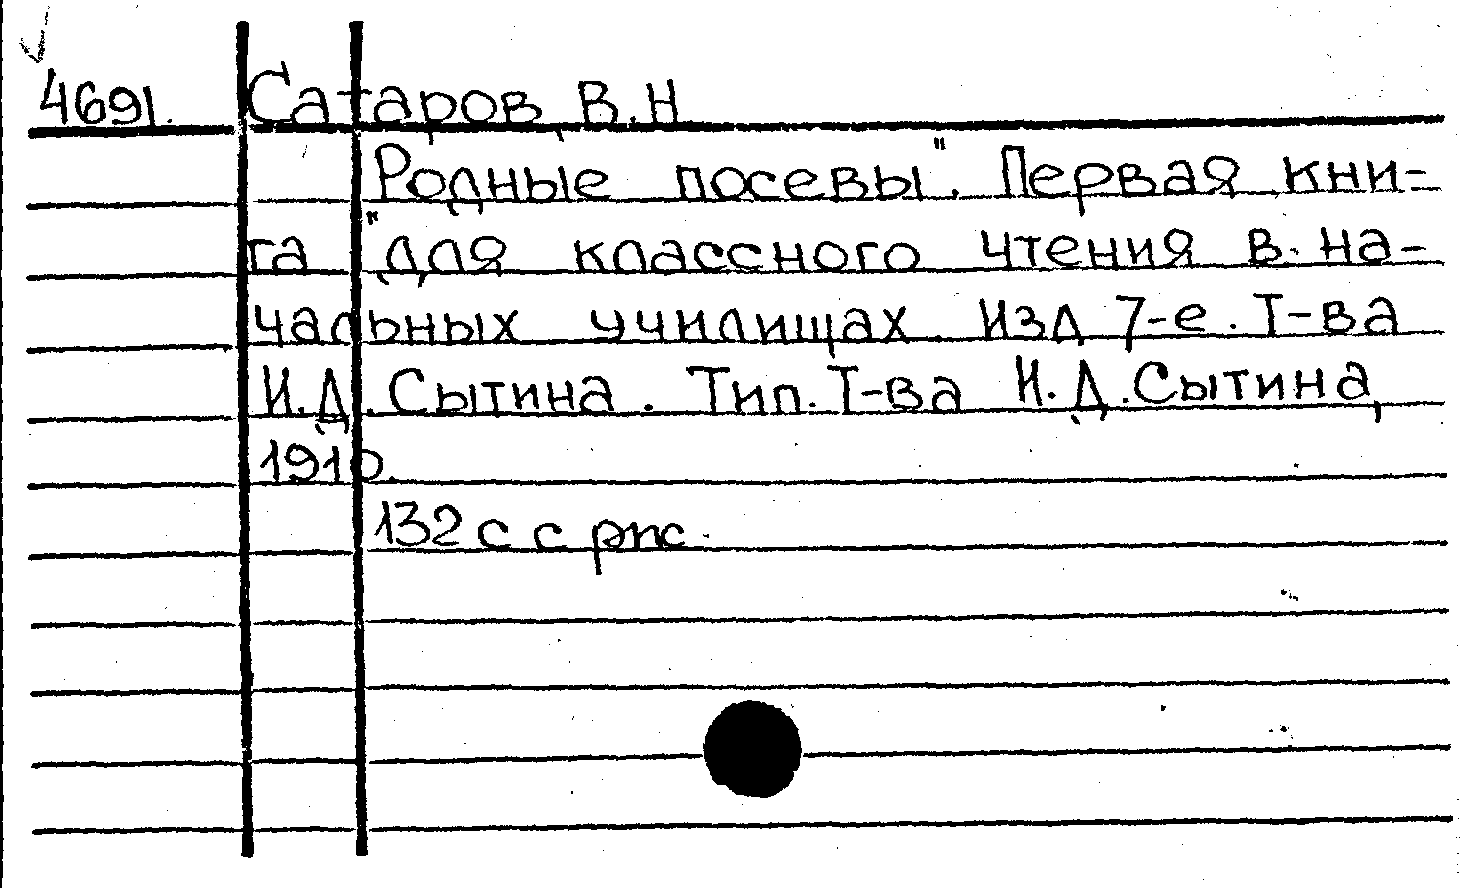 4691. Сатаров В.Н
"Родные посевы". Первая кни-
га для классного чтения в на-
чальных училищах. Изд 7-е. Т-ва
И.Д.Сытина. Тип. Т-ва И.Д.Сытина,
1910.
132 с с рис.